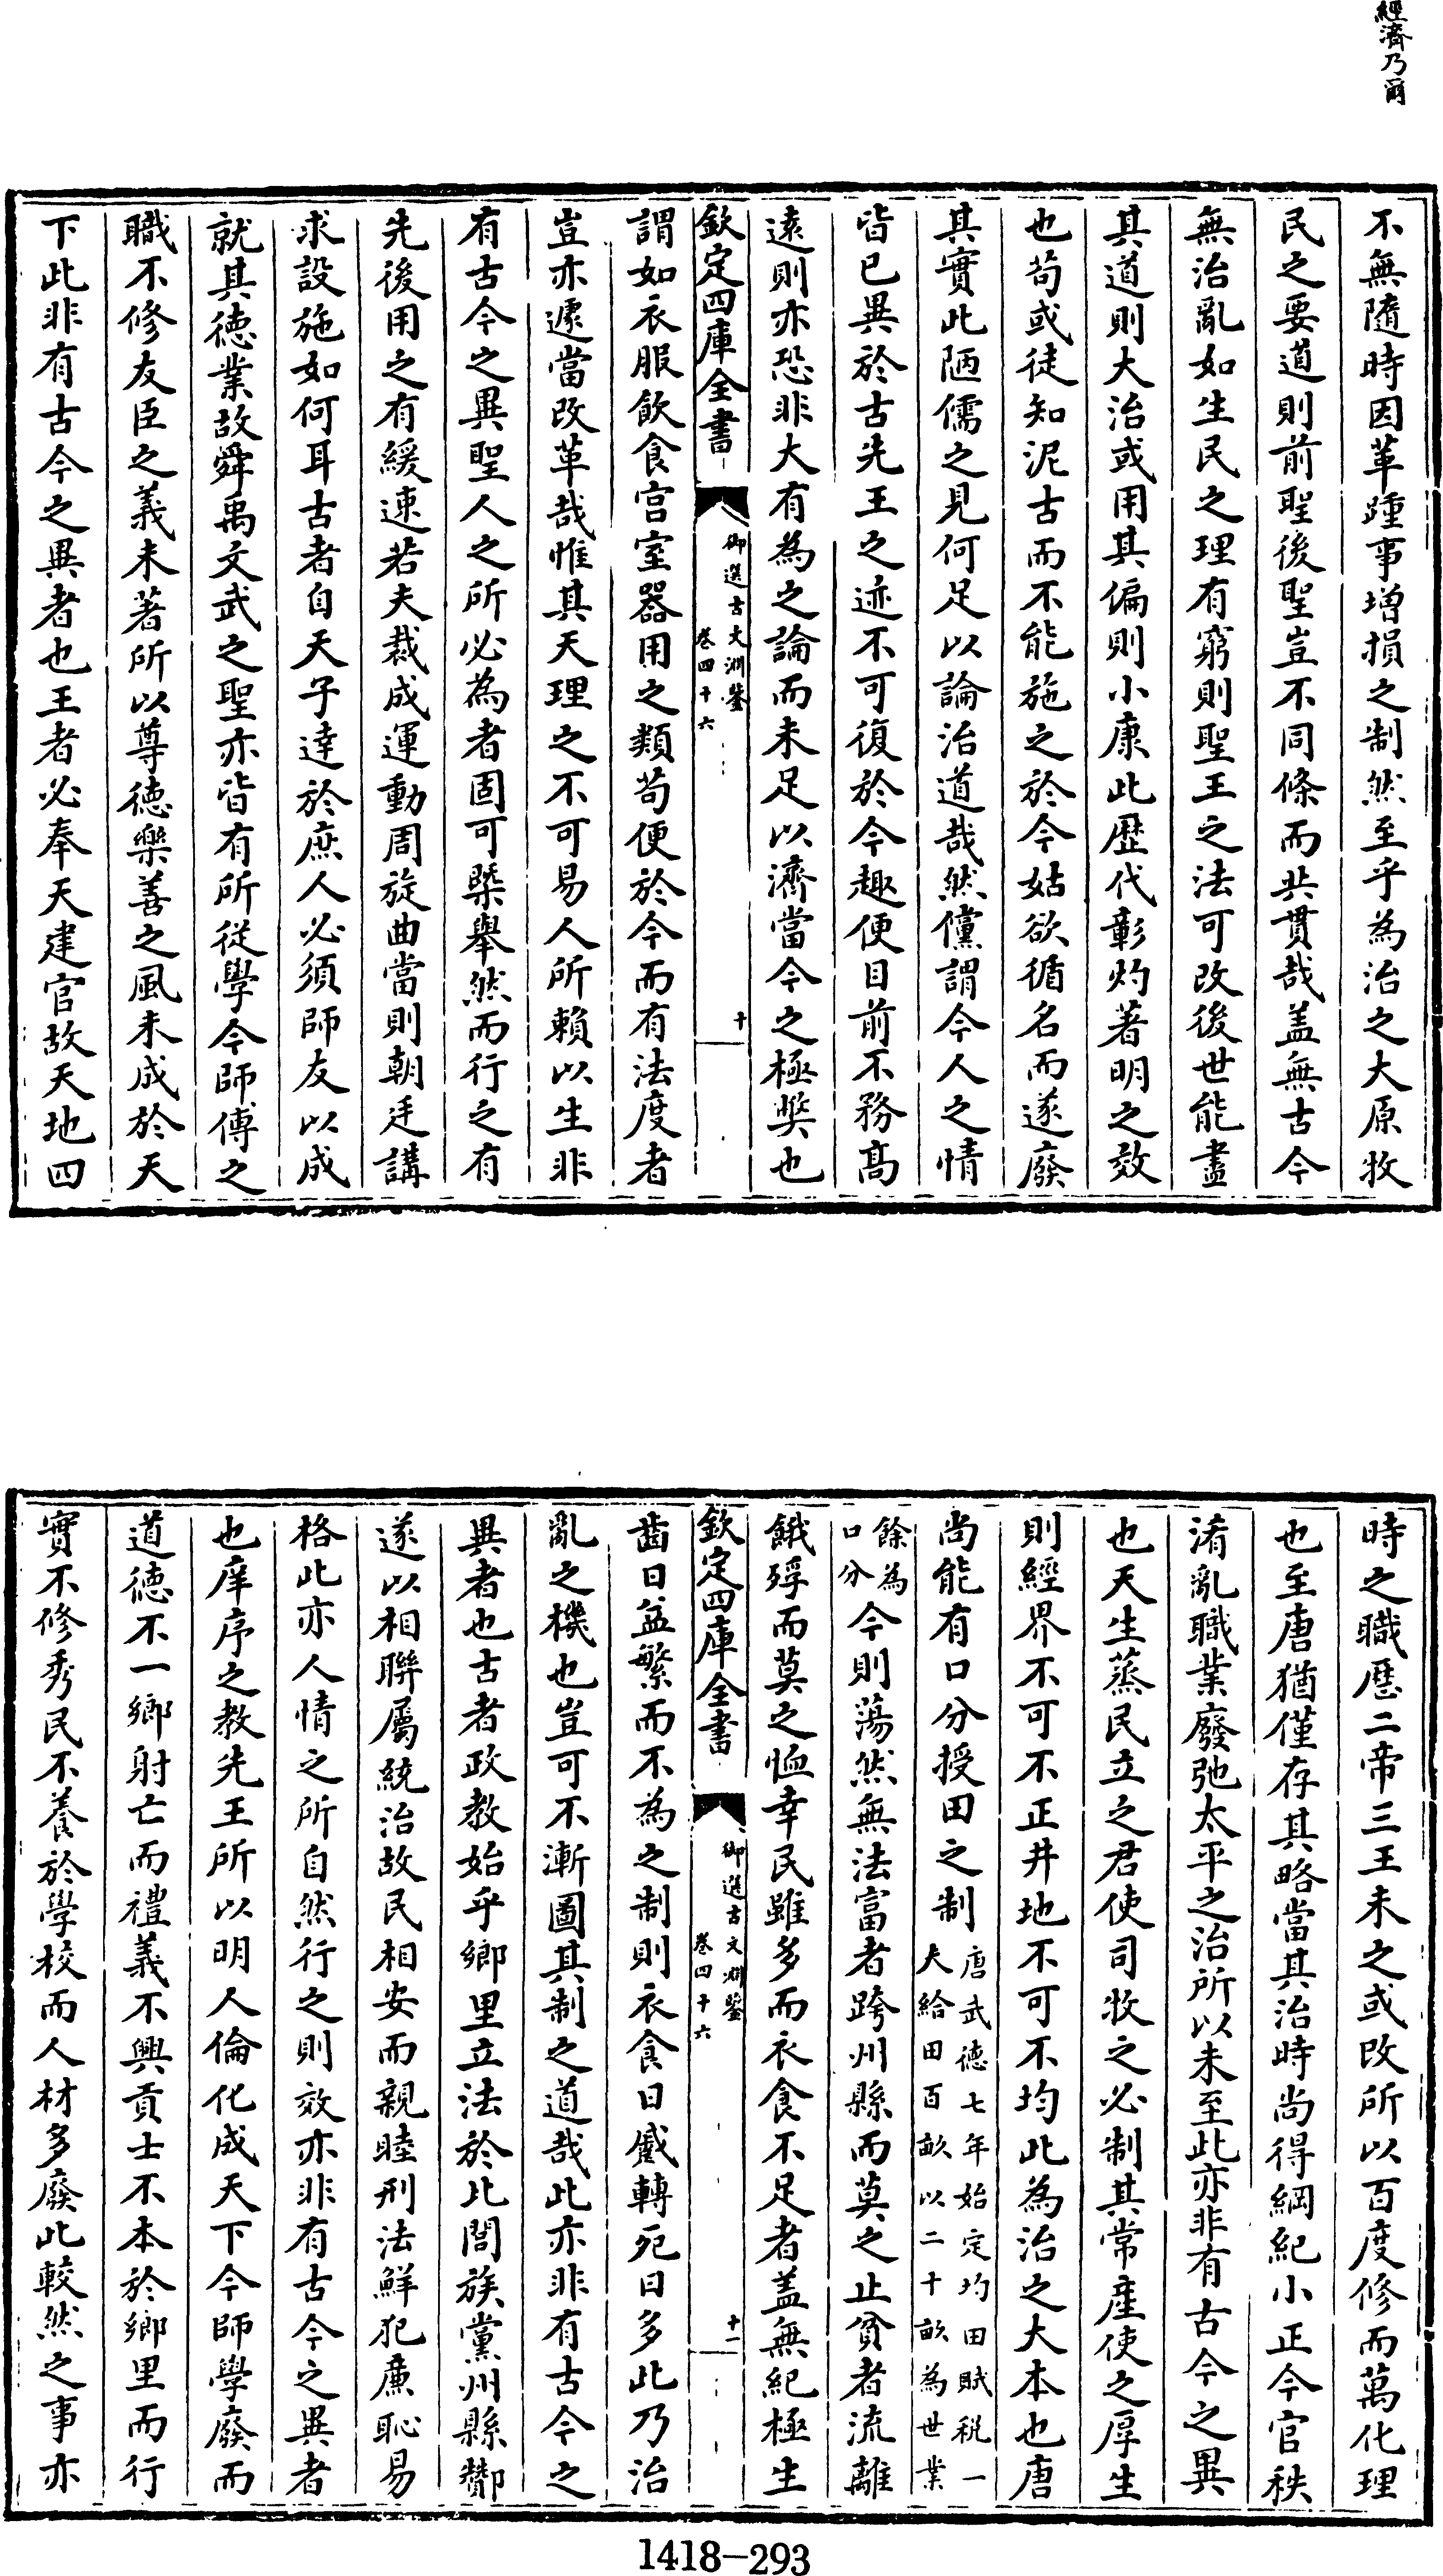 經濟乃爾
不無隨時因革踵事増損之制然至乎為治之大原牧
民之要道則前聖後聖豈不同條而共貫哉盖無古今
無治亂如生民之理有窮則聖王之法可改後世能盡
其道則大治或用其偏則小康此歴代彰灼著明之效
也苟或徒知泥古而不能施之於今姑欲循名而遂廢
其實此陋儒之見何足以論治道哉然儻謂今人之情
皆已異於古先王之迹不可復於今趣便目前不務髙
遠則亦恐非大有為之論而未足以濟當今之極獘也
欽定四庫全書
御選古文淵鑒
卷四十六
十
謂如衣服飲食宫室器用之類苟便於今而有法度者
豈亦遽當改革哉惟其天理之不可易人所賴以生非
有古今之異聖人之所必為者固可槩舉然而行之有
先後用之有緩速若夫裁成運動周旋曲當則朝廷講
求設施如何耳古者自天子達於庶人必須師友以成
就其徳業故舜禹文武之聖亦皆有所從學今師傅之
職不修友臣之義未著所以尊徳樂善之風未成於天
下此非有古今之異者也王者必奉天建官故天地四
時之職歴二帝三王未之或改所以百度修而萬化理
也至唐猶僅存其略當其治時尚得綱紀小正今官秩
淆亂職業廢弛太平之治所以未至此亦非有古今之異
也天生蒸民立之君使司牧之必制其常産使之厚生
則經界不可不正井地不可不均此為治之大本也唐
尚能有口分授田之制唐武徳七年始定均田賦税一
夫給田百畝以二十畝為世業
餘為
口分今則蕩然無法富者跨州縣而莫之止貧者流離
餓殍而莫之恤幸民雖多而衣食不足者盖無紀極生
欽定四庫全書
御選古文淵鑒
卷四十六
十一
齒日益繁而不為之制則衣食日蹙轉死日多此乃治
亂之機也豈可不漸圖其制之道哉此亦非有古今之
異者也古者政教始乎鄉里立法於比閭族黨州縣酇
遂以相聯屬統治故民相安而親睦刑法鮮犯亷恥易
格此亦人情之所自然行之則效亦非有古今之異者
也庠序之教先王所以明人倫化成天下今師學廢而
道徳不一鄉射亡而禮義不興貢士不本於鄉里而行
實不修秀民不養於學校而人材多廢此較然之事亦
1418-293